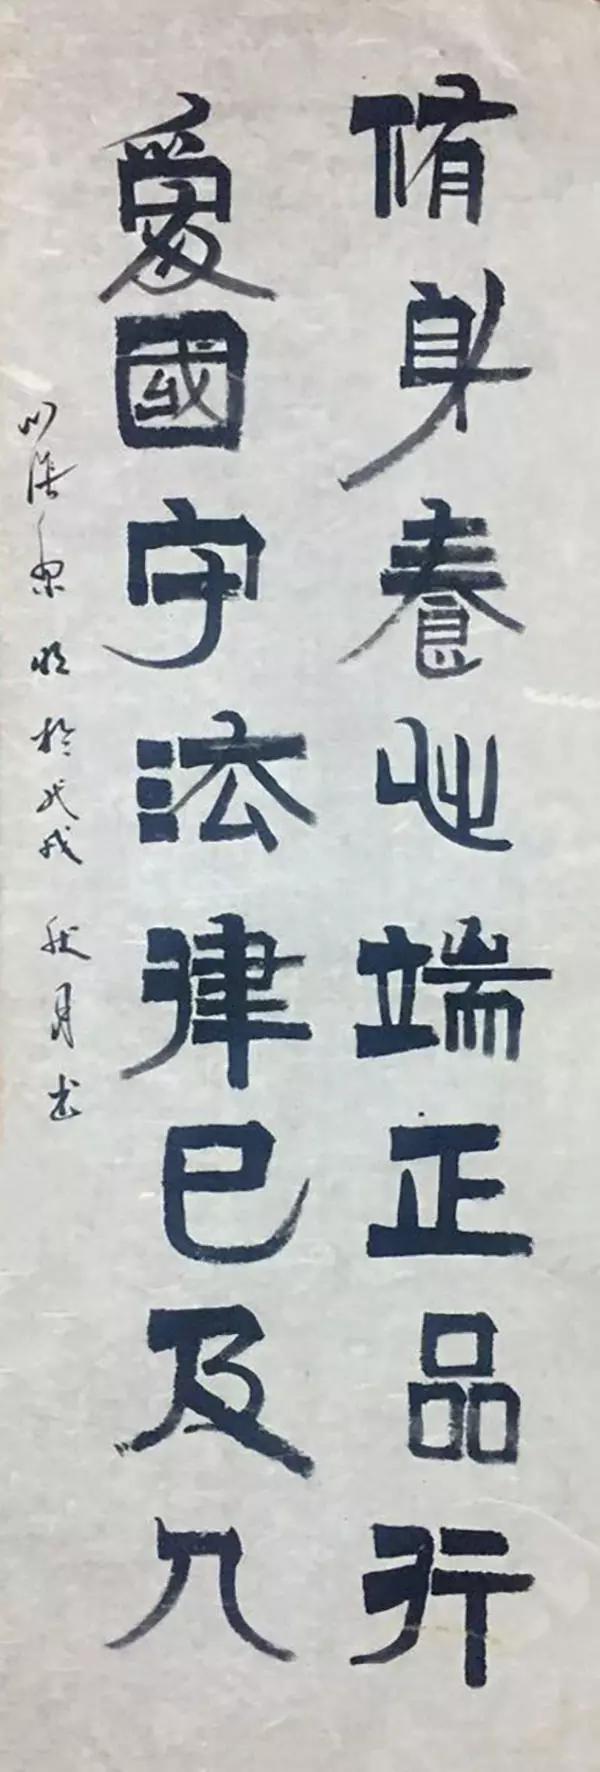 脩身養心端正品行
愛國守法律巳及人
於戊戌秋月书